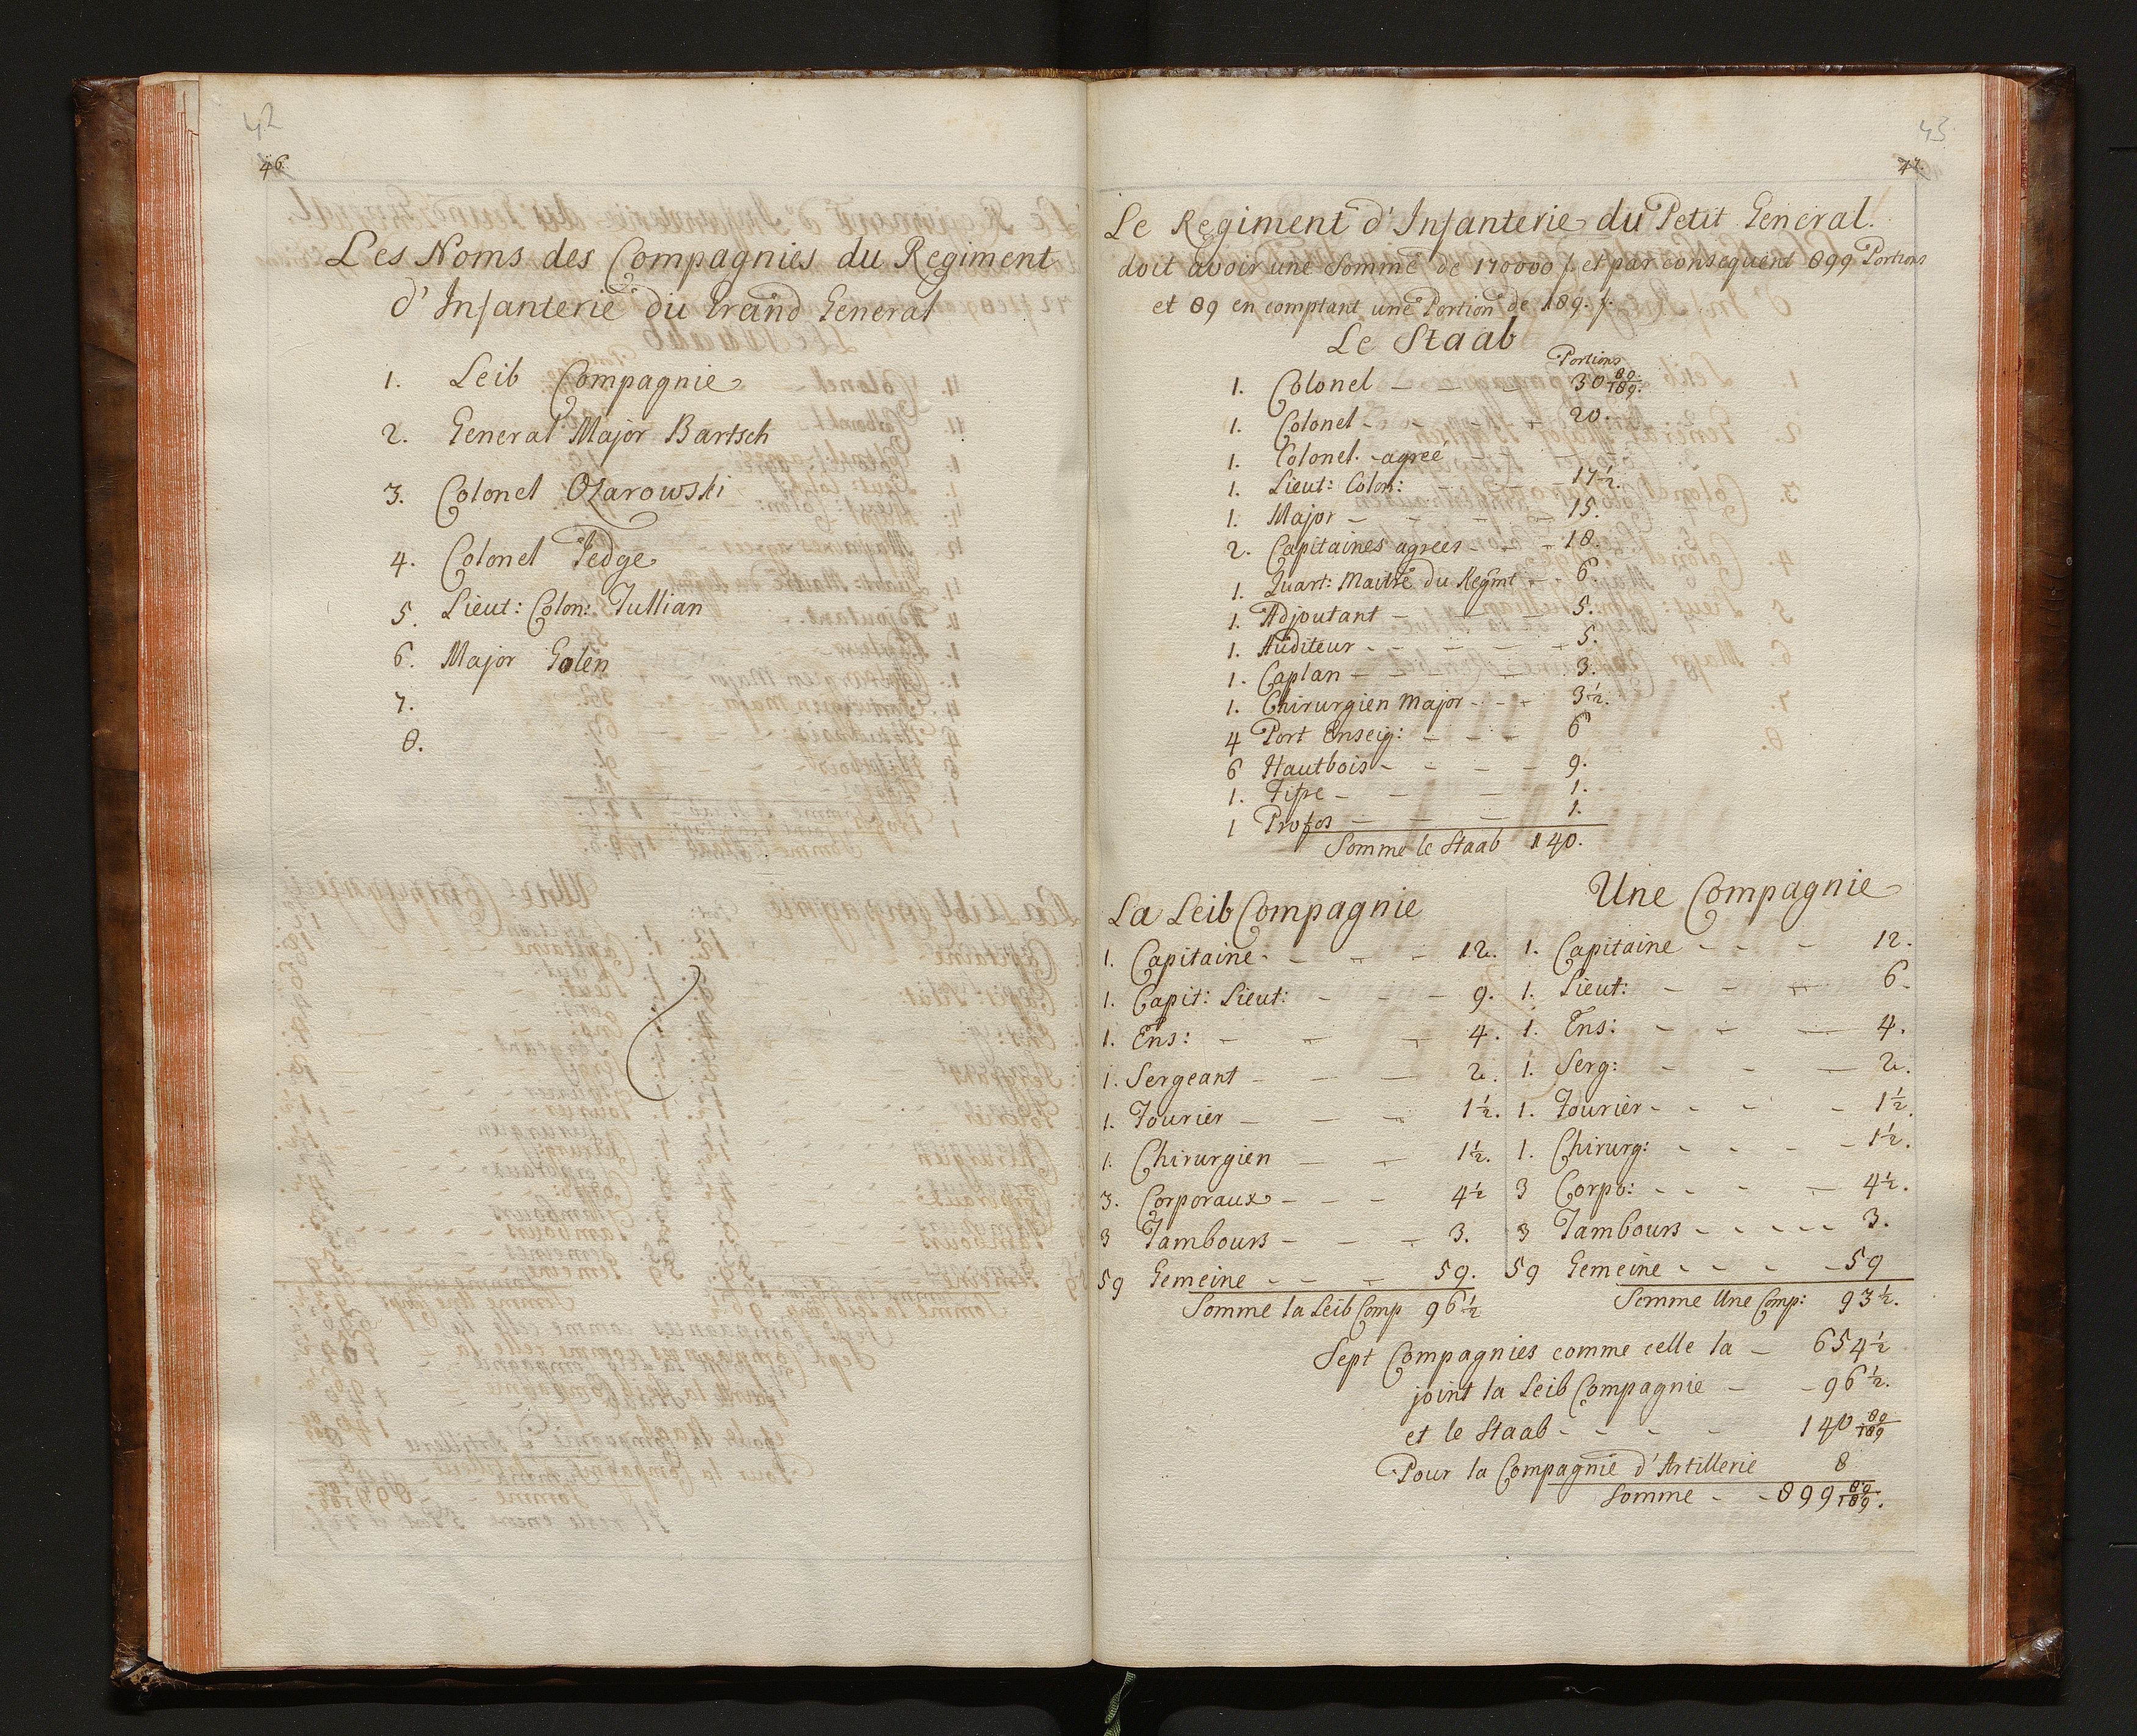 42
46.
Les Noms des Compagnies du Regiment
d'Infanterie du Grand General
1. Leib Compagnie
2. General Major Bartsch
3. Colonel Ozarowski
4. Colonel Fedge
5. Lieut: Colon: Jullian
6. Major Golen
7.
8.
43
47.
Le Regiment d'Infanterie du Petit General.
doit avoir une Somme de 170000 f. et par consequent 899 Portions
et 89 en comptant une Portion de 189. f.
Le Staab
Portions
1. Colonel - - - 30 89/189.
1. Colonel - - - - 20.
1. Colonel. agreé - - -
1. Lieut: Colon: - - 17 1/2.
1. Major - - - - 15.
2. Capitaines agrees - - - 18.
1. Quart: Maitre du Regmt - - 6
1. Adjoutant - - - 5.
1. Auditeur - - - - - 5.
1. Caplan - - - - 3.
1. Chirurgien Major - - - 3 1/2.
4 Port Enseig: - - - 6
6 Hautbois - - - - 9.
1. Fifre - - - 1.
1 Profos - - - 1.
Somme le Staab 140.
La Leib Compagnie
1. Capitaine - - - - 12.
1. Capit: Lieut: - - - 9.
1. Ens: - - - 4.
1. Sergeant - - - 2.
1. Fourier - - - 1 1/2.
1. Chirurgien - - 1 1/2.
3. Corporaux - - - 4 1/2
3 Tambours - - - 3.
59 Gemeine - - - 59.
Somme la Leib Comp 96 1/2
Une Compagnie
1. Capitaine - - - 12.
1. Lieut: - - - 6.
1. Ens: - - - 4.
1. Serg: - - - 2.
1. Fourier - - - - 1 1/2.
1. Chirurg: - - - - 1 1/2.
3 Corpo: - - - - 4 1/2.
3 Tambours - - - - - 3.
59 Gemeine - - - - 59
Somme Une Comp: 93 1/2.
Sept Compagnies comme celle la - 654 1/2
joint la Leib Compagnie - - 96 1/2.
et le Staab - - - - 140 89/189
Pour la Compagnie d'Artillerie 8
Somme - - 899 89/189.